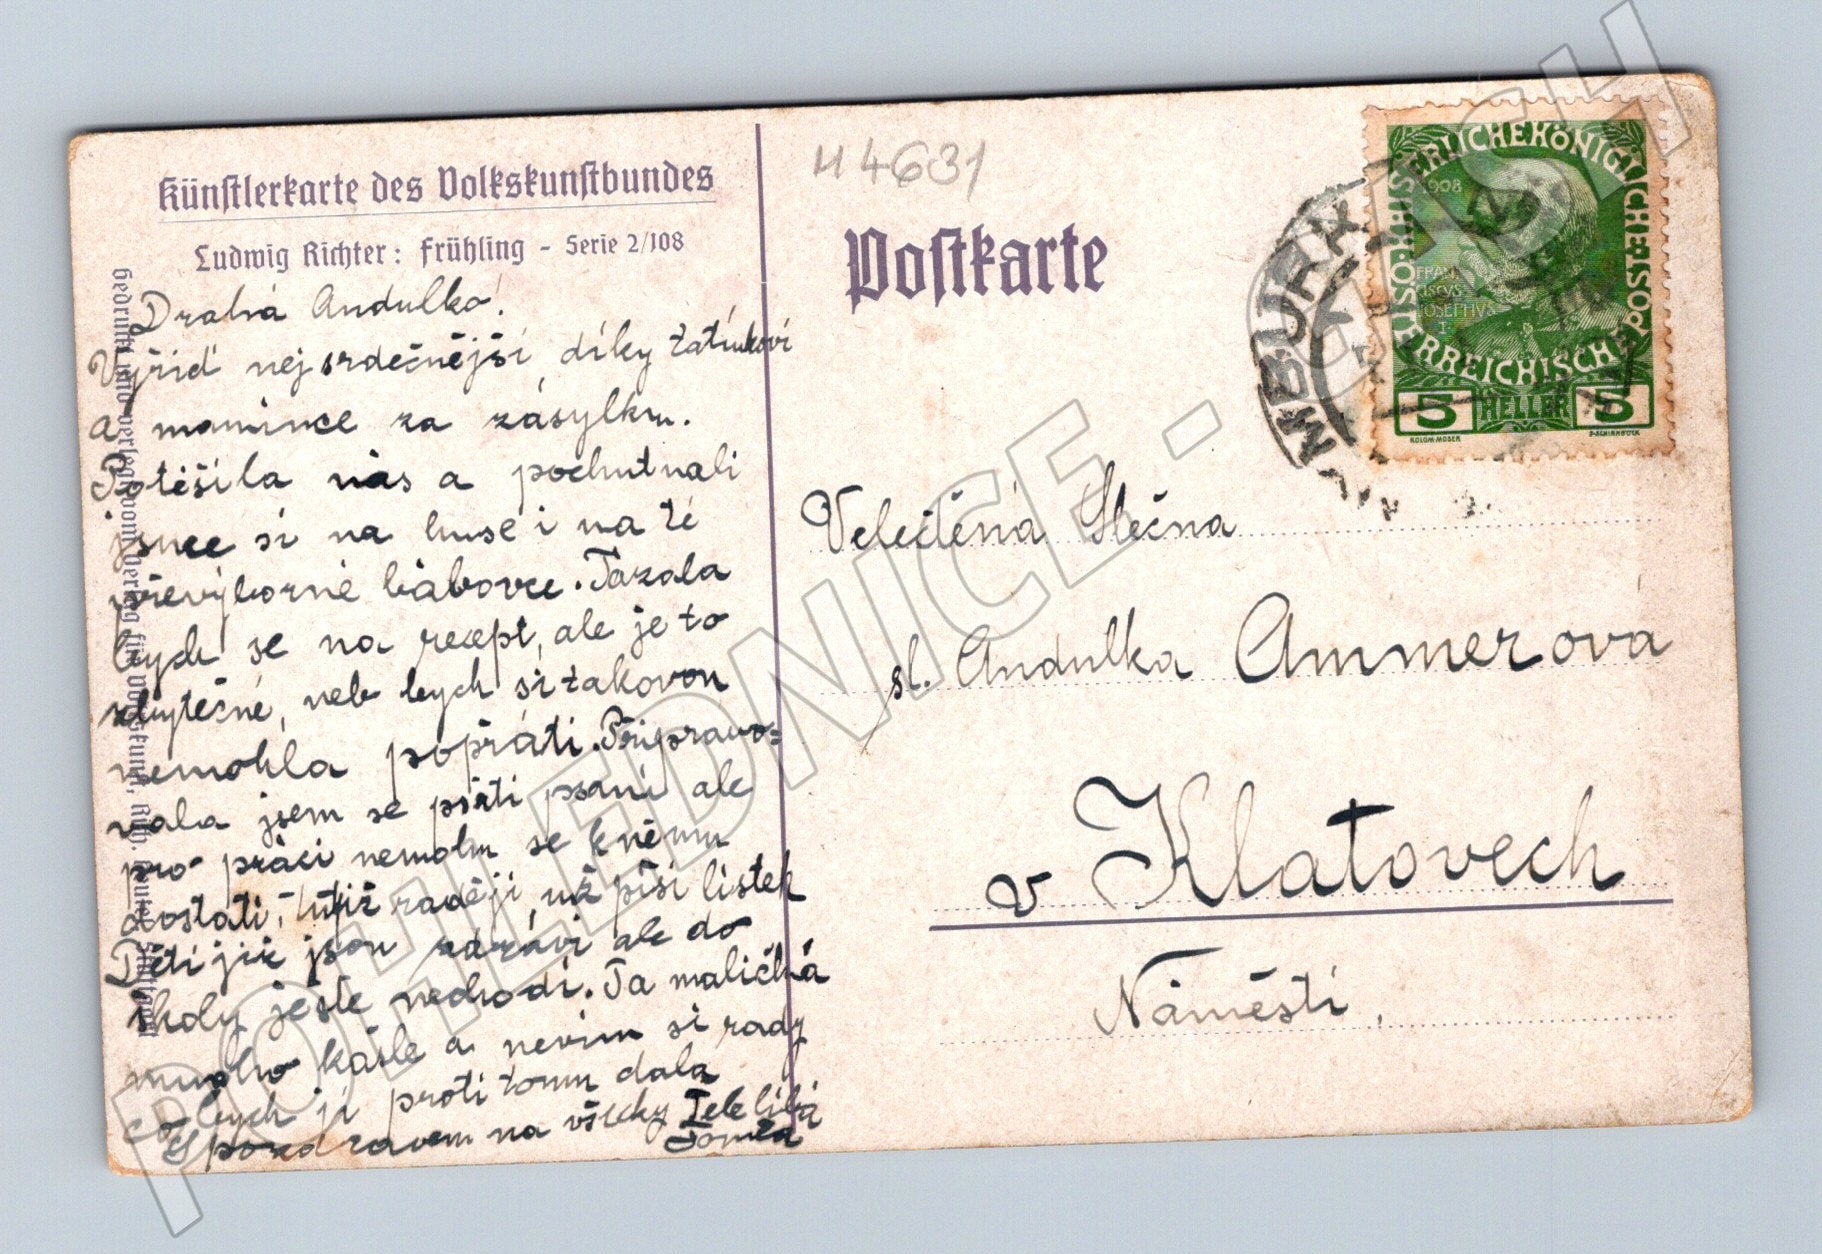 Künstlerkarte des Volkskunstbundes
Ludwig Richter: Frühling - Serie 2/108
Drahá Andulko!
Vyřiď nejsrdečnější díky tatínkovi
a mamince za zásylku.
Potěšila nás a pochutnali
jsme si na huse i na té
převýborné bábovce. Tázala
bych se na recept, ale je to
zbytečné, neb bych si takovou
nemohla popřáti. Připravo=
vala jsem se psáti psaní ale
pro práci nemohu se k němu
dostati, tudíž raději už píši lístek
Děti již jsou zdrávi ale do
školy ještě nechodí. Ta maličká
mnoho kašle a nevím si rady
co bych jí proti tomu dala
S pozdravem na všecky Tebe líbá
Gedruckt und verlegt vom Verlag für Volkskunst, Rich. Keutel, Stuttgart
44631
Postkarte
KAIS. KÖNIGLICHE ÖSTERREICHISCHE POST
1908
FRANC
ISCVS
IOSEPHVS
I
5 HELLER 5
KOLOM·MOSER
F·SCHIRNBÖCK
NIMBURK
Velectěná Slečna
sl. Andulka Ammerova
v Klatovech
Náměstí.
POHLEDNICE - CIHLISH